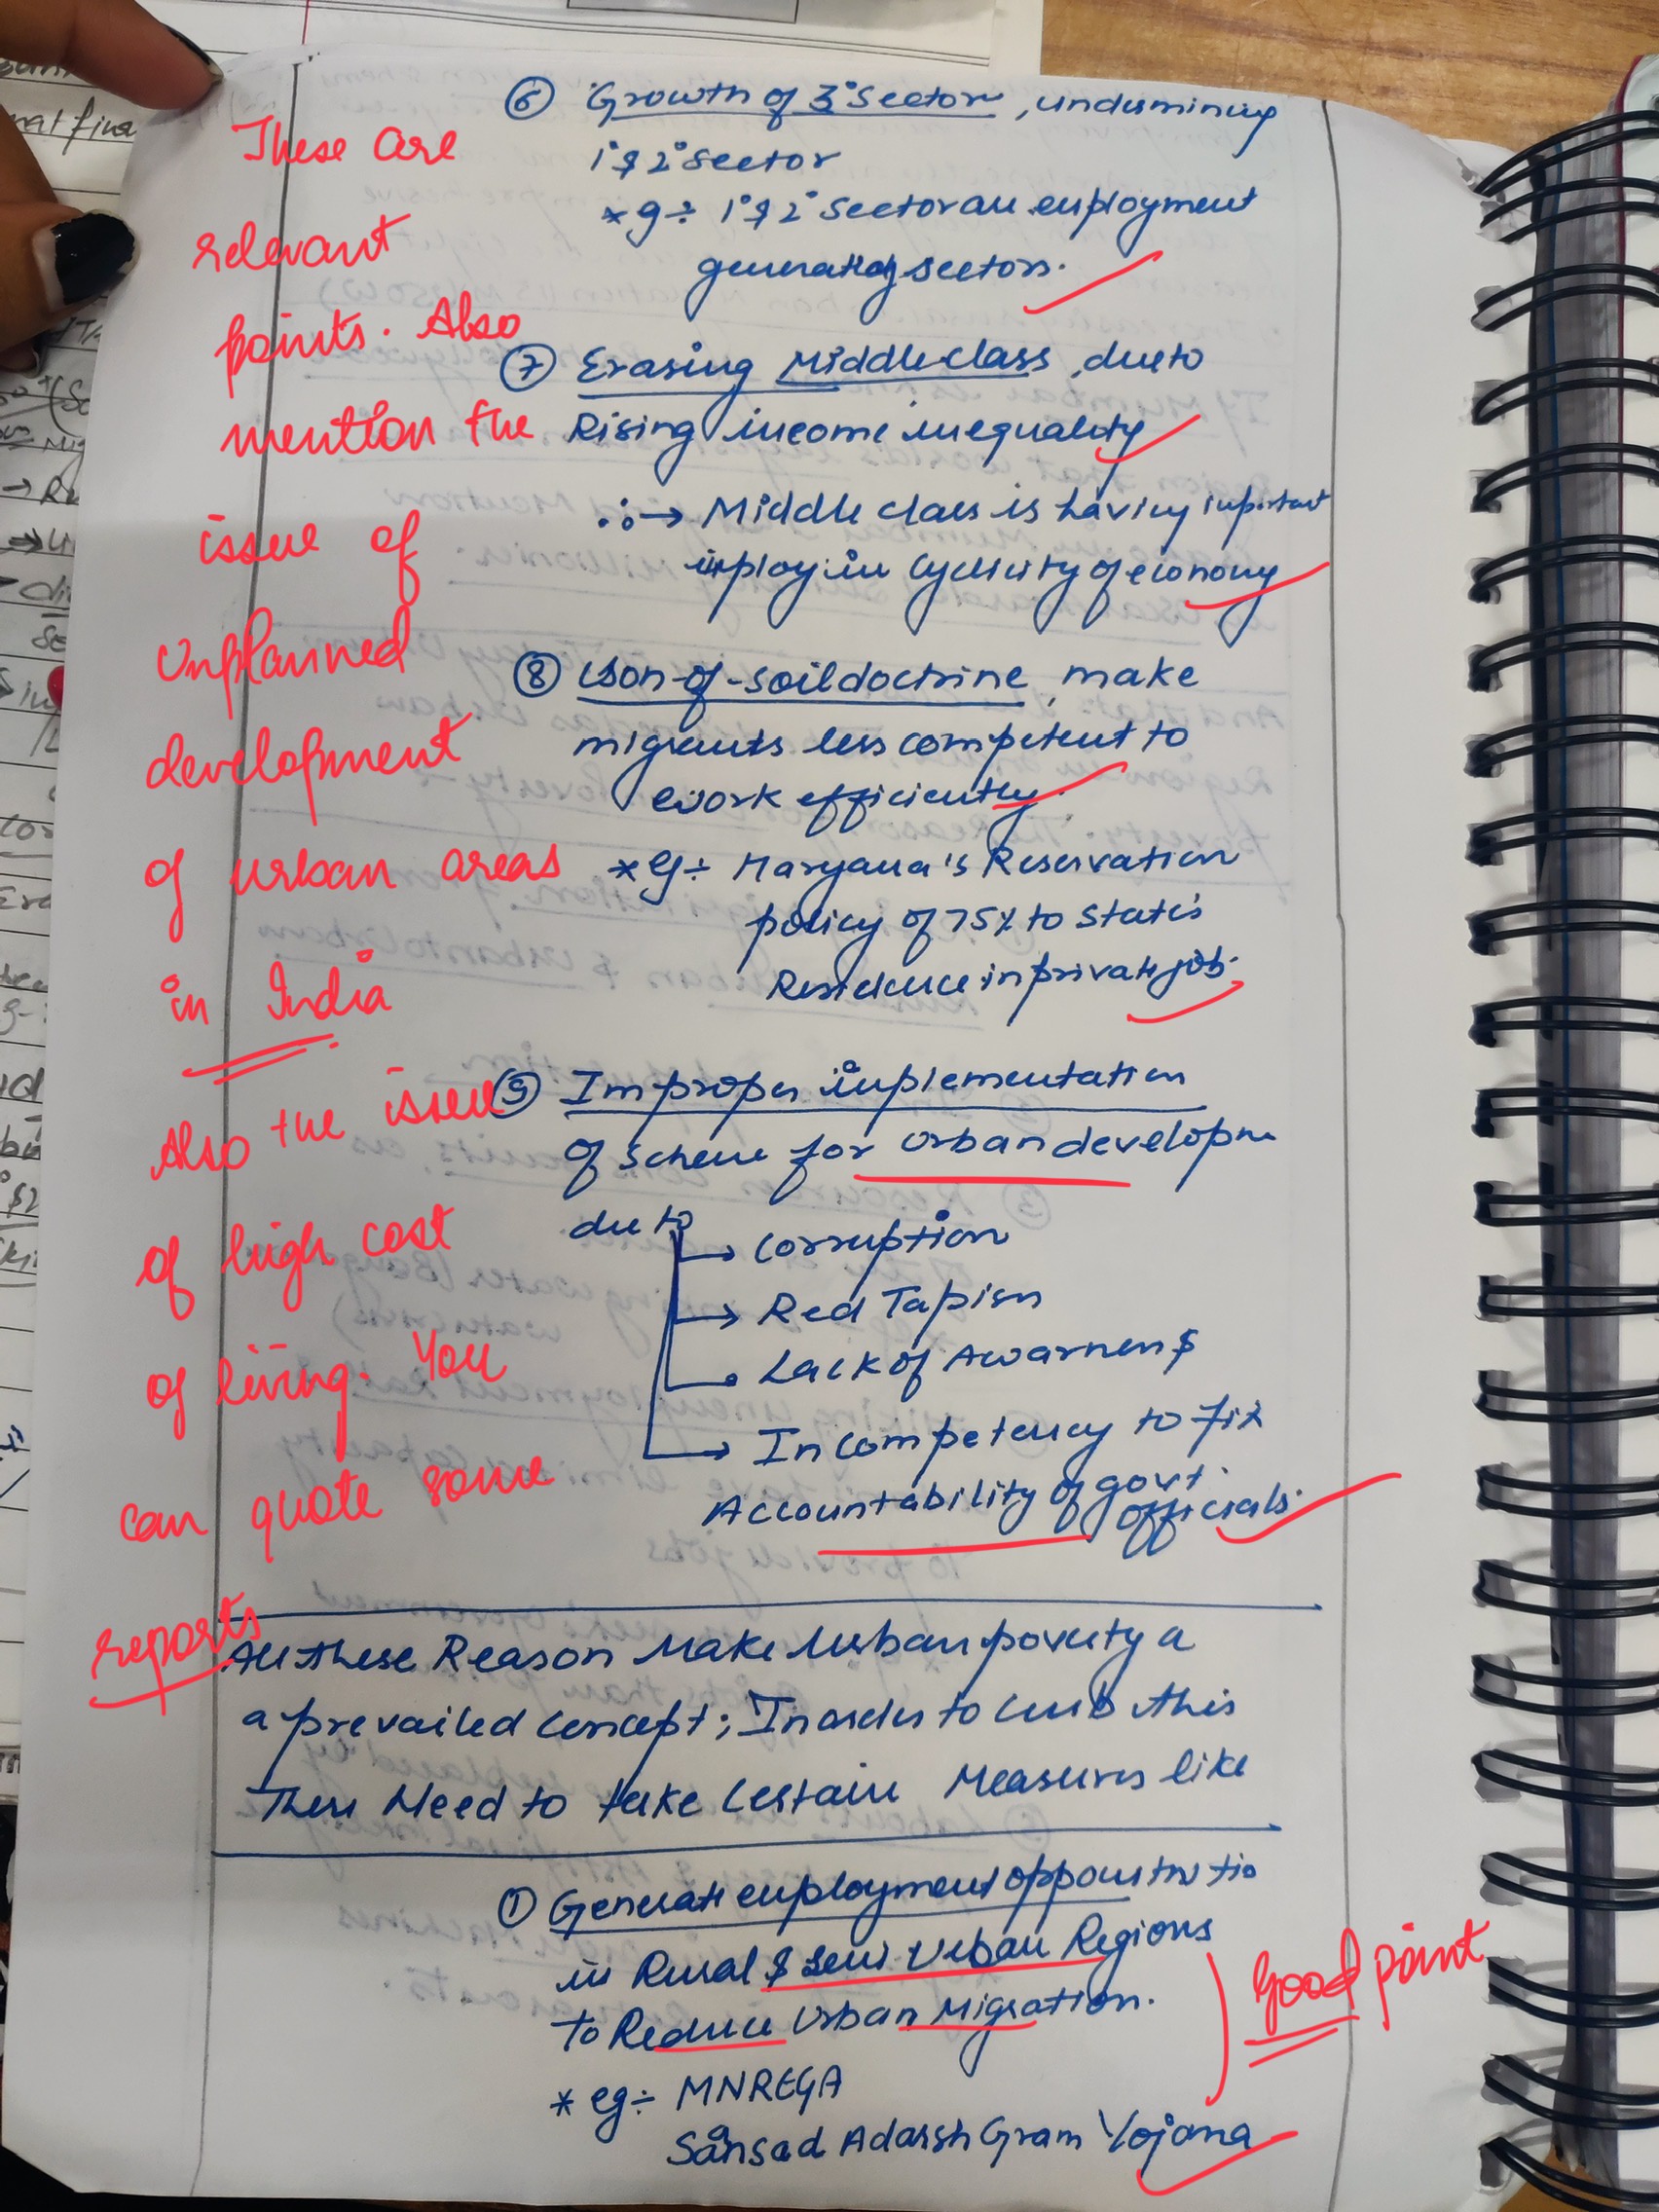 ⑥ Growth of 3° Sector, undermining
1° & 2° Sector
*eg ÷ 1° & 2° Sector are employment
generating sectors.
⑦ Erasing Middle class, due to
Rising income inequality
∴ → Middle class is having important
in cyclicity of economy
⑧ Son-of-soil doctrine, make
migrants less competent to
work efficiently.
*eg ÷ Haryana's Reservation
policy of 75% to State's
Residence in private job.
⑨ Improper implementation
of scheme for urban developm
due to
→ Corruption
→ Red Tapism
→ Lack of Awarness
→ Incompetency to fix
Accountability of govt.
officials.
All these Reason Make Urban poverty a
a prevailed concept; In order to curb this
There Need to take certain Measures like
① Generate employment
in Rural & Semi Urban Regions
to Reduce Urban Migration.
* eg ÷ MNREGA
Sansad Adarsh Gram Yojana
These are
relevant
points. Also
mention the
issue of
unplanned
development
of urban areas
in India
Also the issue
of high cost
of living. You
can quote some
reports
Good point